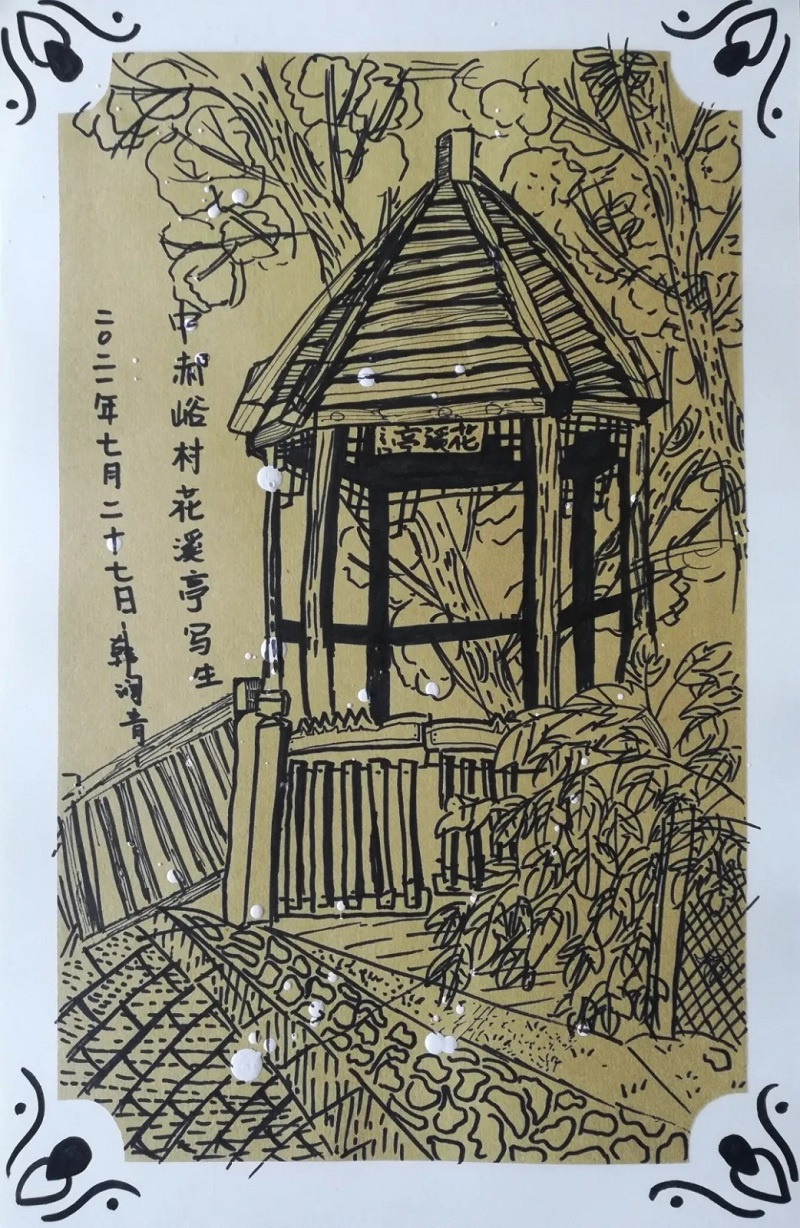 中郝峪村花溪亭写生
二〇二一年七月二十七日韩润青
花溪亭